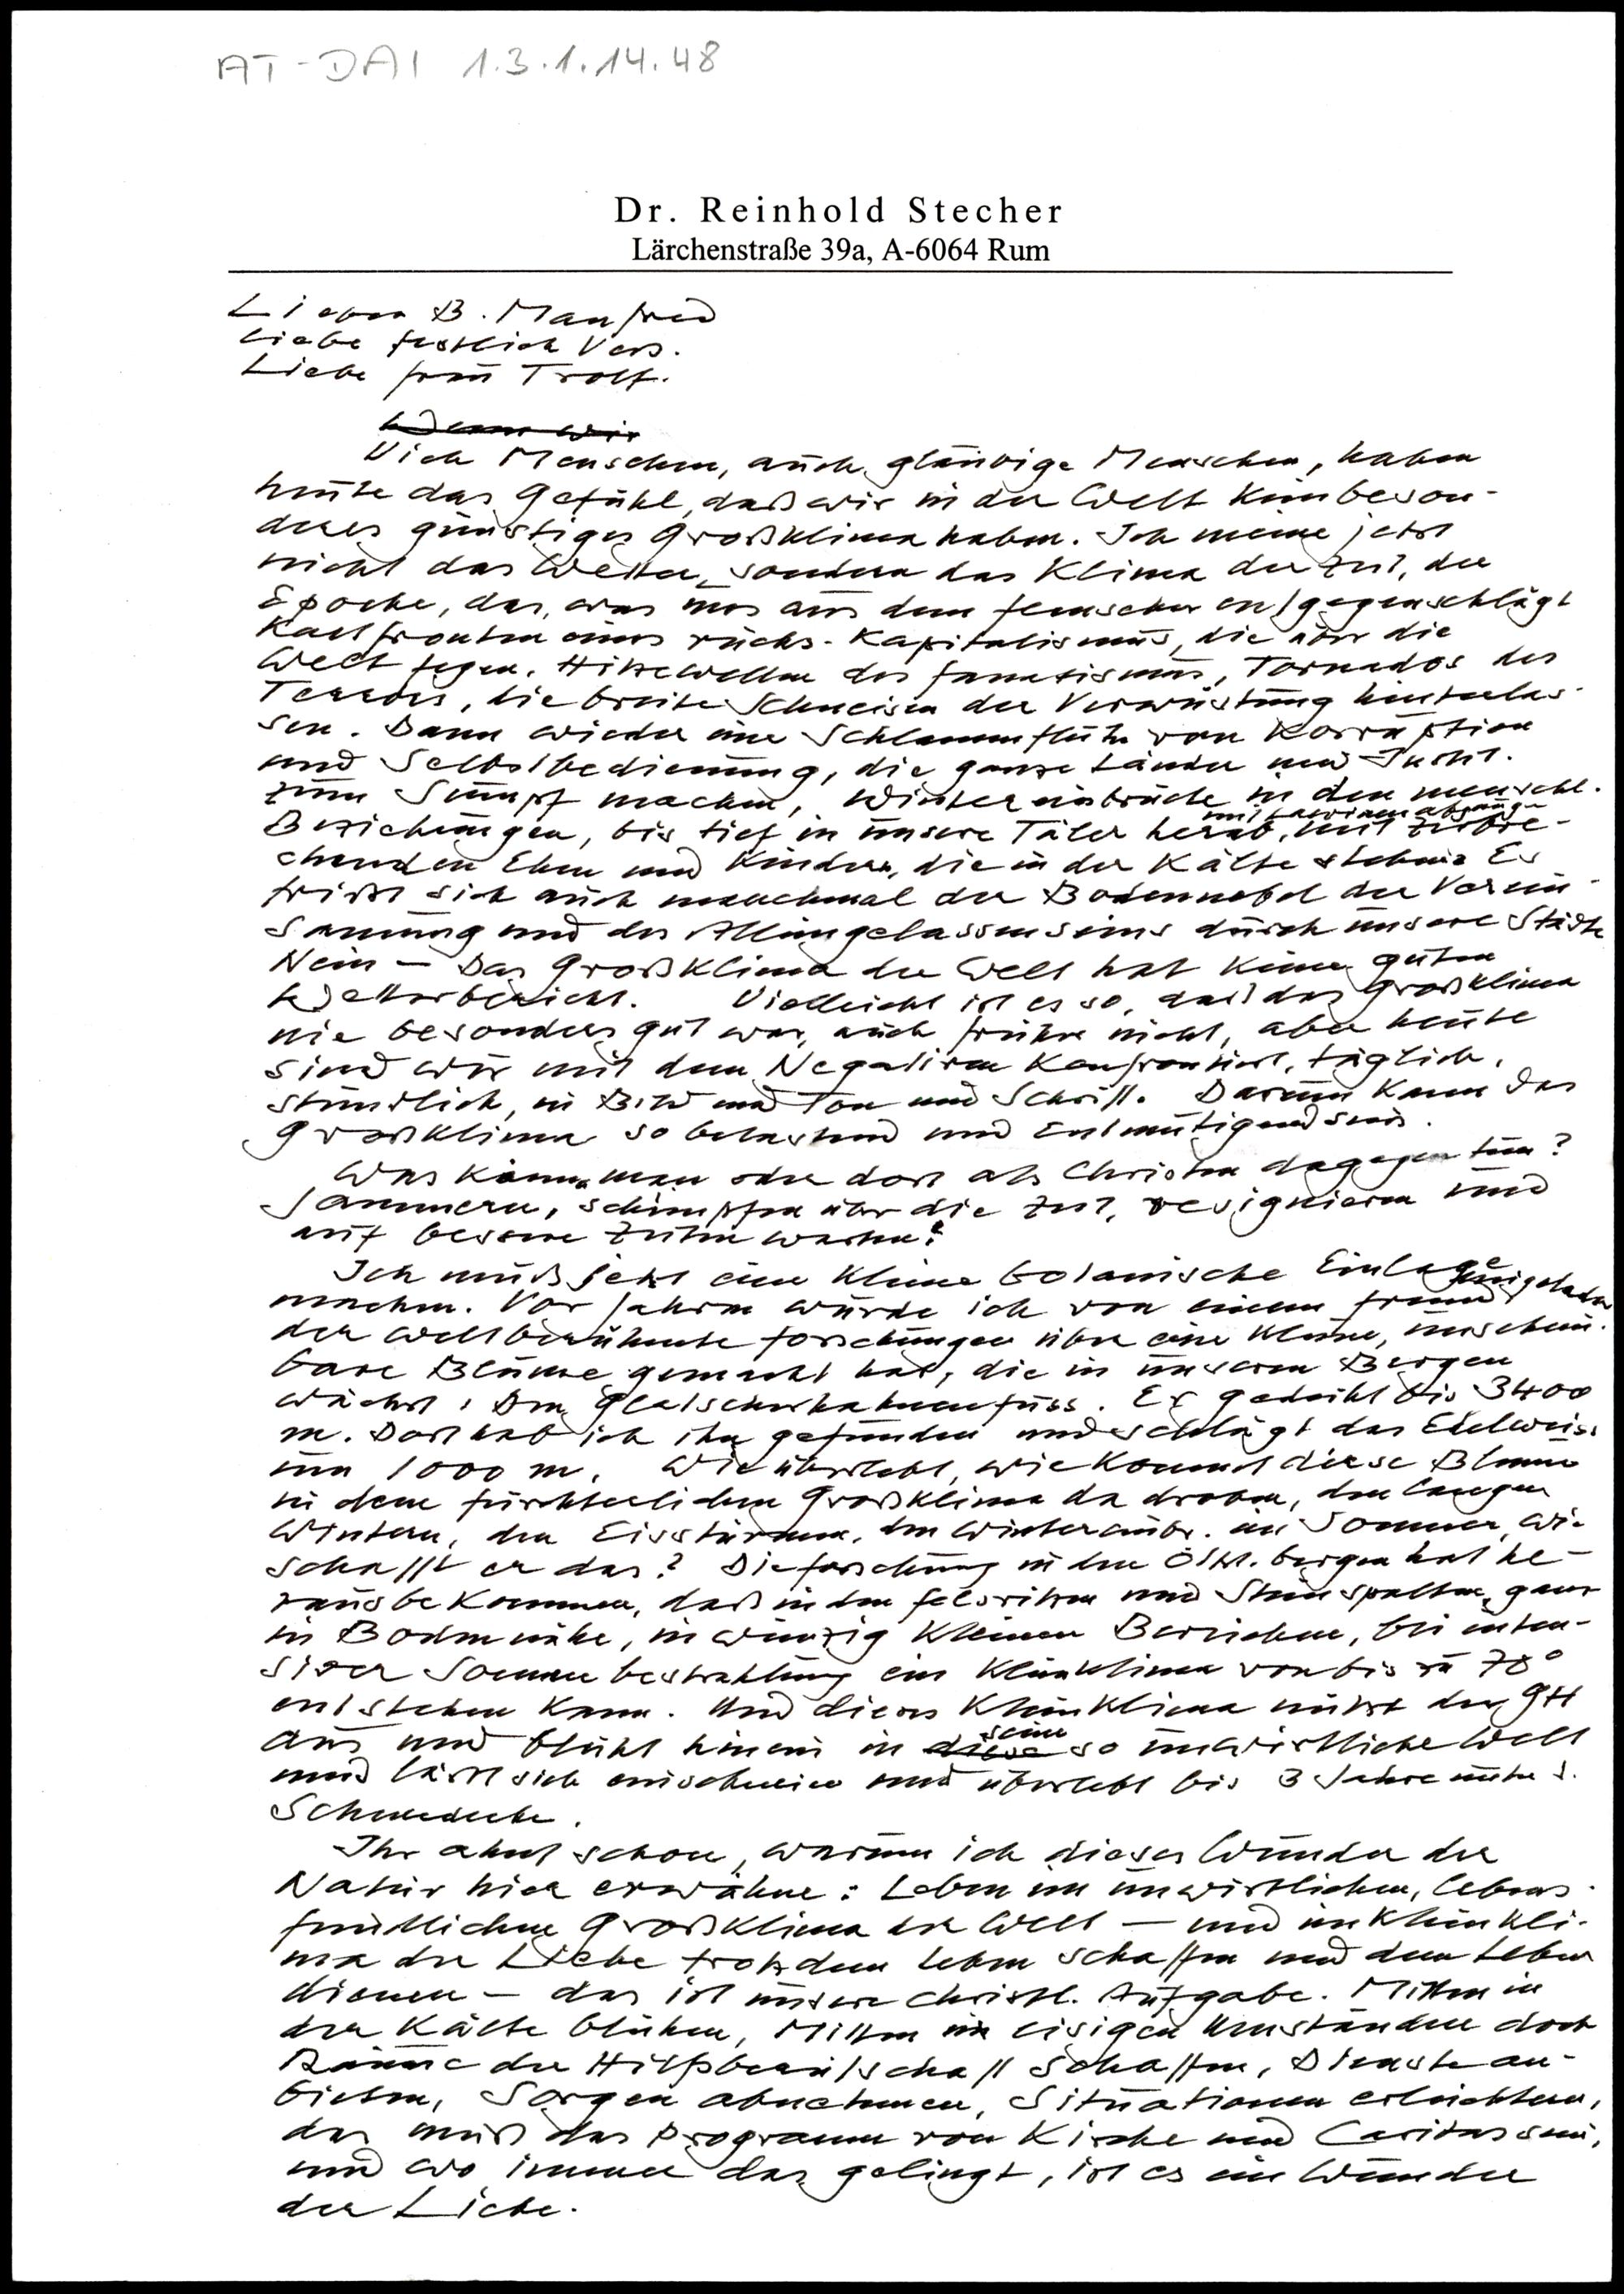 AT-DAI 1.3.1.14.48
Dr. Reinhold Stecher
Lärchenstraße 39a, A-6064 Rum
Lieber B. Manfred
Liebe festlich Vers.
Liebe Frau Trolf.
Wenn wir
Viele Menschen, auch gläubige Menschen, haben
heute das Gefühl, daß wir in der Welt kein beson-
deres günstiges Großklima haben. Ich meine jetzt
nicht das Wetter, sondern das Klima der Zeit, der
Epoche, das, was uns aus dem Fernseher entgegenschlägt
Kaltfronten eines rücks. Kapitalismus, die über die
Welt fegen. Hitzewellen des Fanatismus, Tornados des
Terrors, die breite Schneisen der Verwüstung hinterlas-
sen. Dann wieder eine Schlammflut von Korruption
und Selbstbedienung, die ganze Länder und Instit.
zum Sumpf machen, Wintereinbrüche in den menschl.
mit Lawinenabgänge
Beziehungen, bis tief in unsere Täler herab, mit zerbre-
chenden Ehen und Kindern, die in der Kälte stehen. Es
frißt sich auch manchmal der Bodennebel der Verein-
samung und des Alleingelassenseins durch unsere Städte
Nein – Das Großklima der Welt hat keinen guten
Wetterbericht. Vielleicht ist es so, daß das Großklima
nie besonders gut war, auch früher nicht, aber heute
sind wir mit dem Negativen konfrontiert, täglich,
stündlich, in Bild und Ton und Schrift. Darum kann das
Großklima so belastend und entmutigend sein.
Was kann man oder dort als Christen dagegen tun?
Jammern, schimpfen über die Zeit, resignieren und
auf bessere Zeiten warten?
Ich muß jetzt eine kleine botanische Einlage
machen. Vor Jahren wurde ich von einem Freund eingeladen
der weltberühmte Forschungen über eine kleine, unschein-
bare Blume gemacht hat, die in unseren Bergen
wächst: Den Gletscherhahnenfuss. Er gedeiht bis 3400
m. Dort hab ich ihn gefunden und schlägt das Edelweiss
um 1000 m. Wie überlebt, wie kommt diese Blume
in dem fürchterlichen Großklima da droben, den langen
Wintern, den Eisstürmen, den Wintereinbr. im Sommer, wie
schafft er das? Die Forschung in den Ötzt. Bergen hat he-
rausbekommen, daß in den Felsritzen und Steinspalten, ganz
in Bodennähe, in winzig kleinen Bereichen, bei inten-
siver Sonnenbestrahlung ein Kleinklima von bis zu 70°
entstehen kann. Und dieses Kleinklima nützt der GH
seine
aus und blüht hinein in diese so unwirtliche Welt
und läßt sich einschneien und überlebt bis 3 Jahre unter d.
Schneedecke.
Ihr ahnt schon, warum ich dieses Wunder der
Natur hier erwähne: Leben im unwirtlichen, lebens-
feindlichen Großklima der Welt – und im Kleinkli-
ma der Liebe trotzdem Leben schaffen und dem Leben
dienen – das ist unsere christl. Aufgabe. Mitten in
der Kälte blühen, Mitten in eisigen Umständen doch
Räume der Hilfsbereitschaft schaffen, Dienste an-
bieten, Sorgen abnehmen, Situationen erleichtern,
das muß das Programm von Kirche und Caritas sein,
und wo immer das gelingt, ist es ein Wunder
der Liebe.